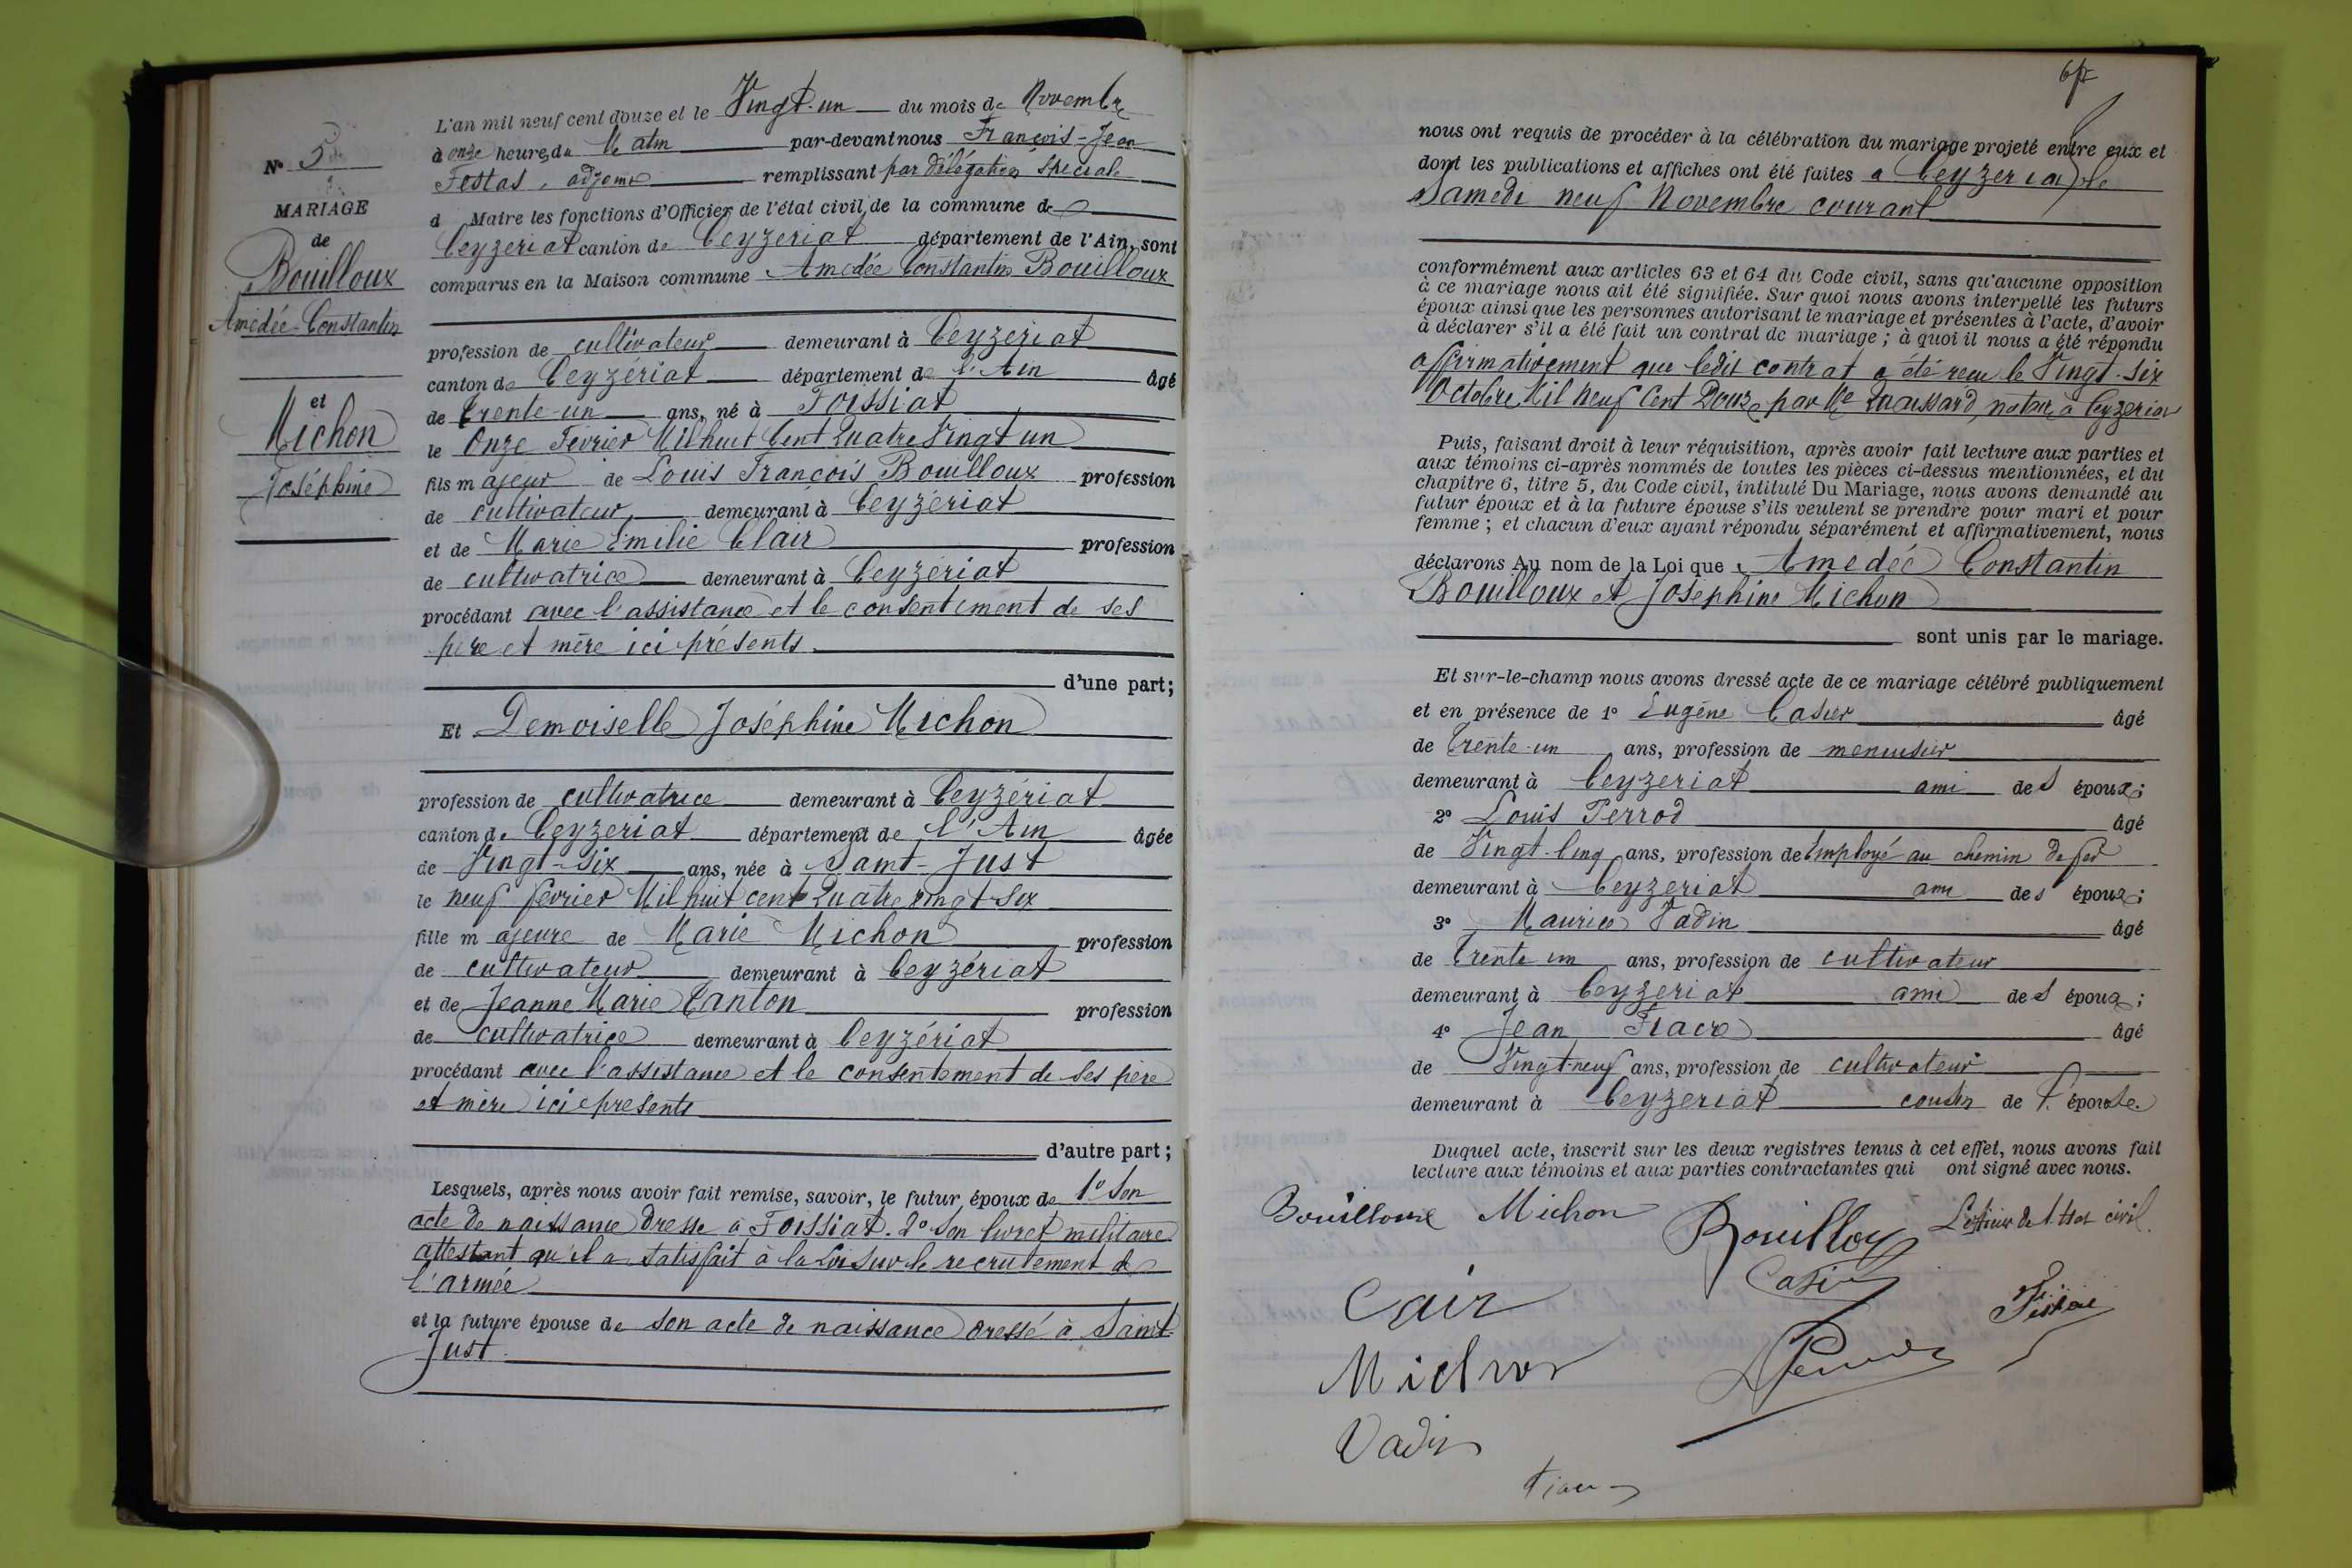 N° 5
MARIAGE
de
Bouilloux
Amédée-Constantin
et
Michon
Joséphine
L'an mil neuf cent douze et le Vingt-un du mois de Novembre
à onze heures du Matin par-devant nous François-Jean
Festas, adjoint remplissant par délégation Spéciale
d Maire les fonctions d'Officier de l'état civil de la commune de
Ceyzeriat canton de Ceyzeriat département de l'Ain, sont
comparus en la Maison commune Amédée Constantin Bouilloux
profession de cultivateur demeurant à Ceyzériat
canton de Ceyzériat département de l'Ain âgé
de trente-un ans, né à Foissiat
le Onze Février Mil huit Cent Quatre Vingt un
fils majeur de Louis François Bouilloux profession
de cultivateur, demeurant à Ceyzériat
et de Marie Emilie Clair profession
de cultivatrice demeurant à Ceyzériat
procédant avec l'assistance et le consentement de ses
père et mère ici présents.
d'une part;
Et Demoiselle Joséphine Michon
profession de cultivatrice demeurant à Ceyzériat
canton de Ceyzeriat département de l'Ain âgée
de Vingt-Six ans, née à Saint-Just
le neuf février Mil huit cent Quatre vingt-Six
fille majeure de Marie Michon profession
de cultivateur demeurant à Ceyzériat
et de Jeanne Marie Tanton profession
de cultivatrice demeurant à Ceyzériat
procédant avec l'assistance et le consentement de ses père
et mère ici présents
d'autre part;
Lesquels, après nous avoir fait remise, savoir, le futur époux de 1° Son
acte de naissance dressé à Foissiat. 2° Son livret militaire
attestant qu'il a Satisfait à la Loi sur le recrutement de
l'armée
et la future épouse de Son acte de naissance dressé à Saint-
Just.
nous ont requis de procéder à la célébration du mariage projeté entre eux et
dont les publications et affiches ont été faites a Ceyzeriat, le
Samedi neuf Novembre courant
conformément aux articles 63 et 64 du Code civil, sans qu'aucune opposition
à ce mariage nous ait été signifiée. Sur quoi nous avons interpellé les futurs
époux ainsi que les personnes autorisant le mariage et présentes à l'acte, d'avoir
à déclarer s'il a été fait un contrat de mariage; à quoi il nous a été répondu
affirmativement que ledit contrat a été reçu le Vingt-Six
Octobre Mil neuf Cent Douze par Me notaire à Ceyzeriat
Puis, faisant droit à leur réquisition, après avoir fait lecture aux parties et
aux témoins ci-après nommés de toutes les pièces ci-dessus mentionnées, et du
chapitre 6, titre 5, du Code civil, intitulé Du Mariage, nous avons demandé au
futur époux et à la future épouse s'ils veulent se prendre pour mari et pour
femme; et chacun d'eux ayant répondu séparément et affirmativement, nous
déclarons Au nom de la Loi que Amédée Constantin
Bouilloux et Joséphine Michon
sont unis par le mariage.
Et sur-le-champ nous avons dressé acte de ce mariage célébré publiquement
et en présence de 1° Eugène Casier âgé
de trente-un ans, profession de menuisier
demeurant à Ceyzeriat ami des époux;
2° Louis Perrod âgé
de Vingt-Cinq ans, profession de Employé au chemin de fer
demeurant à Ceyzeriat ami des époux;
3° Maurice Vadin âgé
de trente un ans, profession de cultivateur
demeurant à Ceyzeriat ami des époux;
4° Jean Fiacre âgé
de Vingt-neuf ans, profession de cultivateur
demeurant à Ceyzeriat cousin de l'épouse.
Duquel acte, inscrit sur les deux registres tenus à cet effet, nous avons fait
lecture aux témoins et aux parties contractantes qui ont signé avec nous.
Bouilloux Michon Bouilloux L'officier de l'état civil.
Clair Casier
Michon Perrod
Vadin
Fiacre